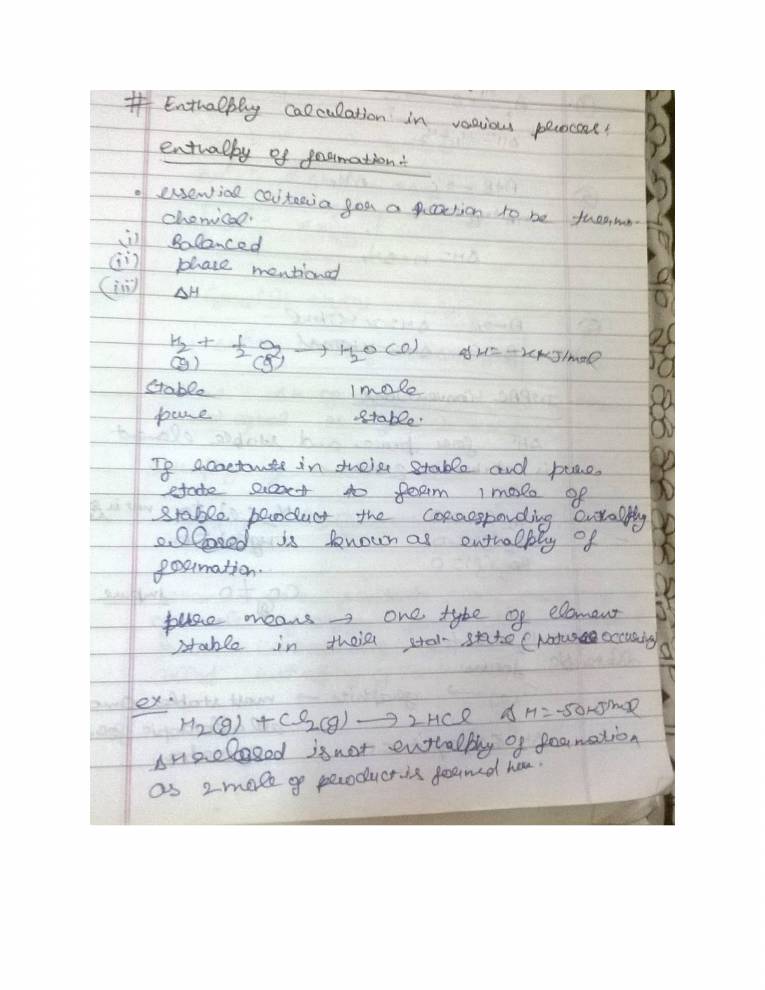 # Enthalphy calculation in various process:
enthalpy of formation:-
• essential criteria for a reaction to be thermo-
chemical.
i) Balanced
(ii) phase mentioned
(iii) ΔH
H2 + 1/2 O2 → H2O (l) ΔH = -xKJ/mol
(g) (g)
stable 1 mole
pure stable.
If reactants in their stable and pure
state react to form 1 mole of
stable product the corresponding enthalphy
relased is known as enthalphy of
formation.
pure means → one type of element
stable in their std. state (Nature occuring)
ex.
H2(g) + Cl2(g) → 2HCl ΔH = -50KJ/mol
ΔH relased is not enthalphy of formation
as 2 mole of product is formed here.